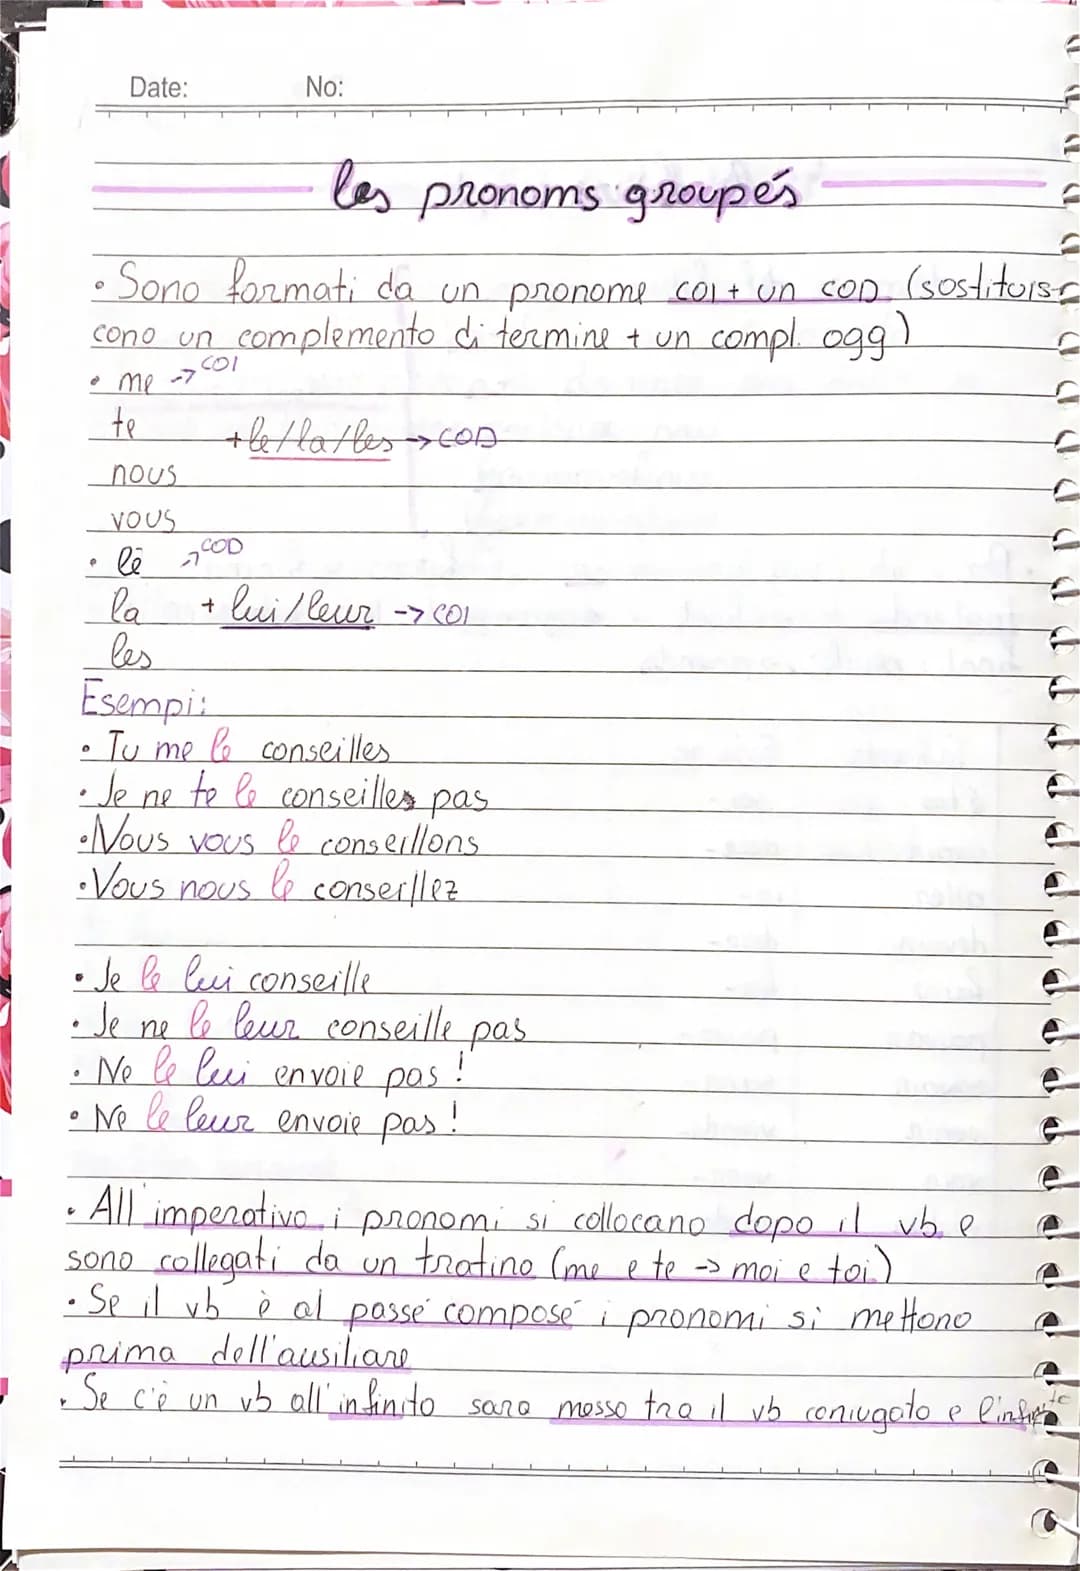 Date: No:
les pronoms groupés
• Sono formati da un pronome COI + un COD (sostituis-
cono un complemento di termine + un compl. ogg)
• me → COI
te
+ le/la/les → COD
nous
vous
• le → COD
la + lui/leur → COI
les
Esempi:
• Tu me le conseilles
• Je ne te le conseilles pas
• Nous vous le conseillons
• Vous nous le conseillez
• Je le lui conseille
• Je ne le leur conseille pas
• Ne le lui envoie pas !
• Ne le leur envoie pas !
• All'imperativo i pronomi si collocano dopo il vb e
sono collegati da un tratino (me e te → moi e toi)
• Se il vb è al passé composé i pronomi si mettono
prima dell'ausiliare
• Se c'è un vb all'infinito sara messo tra il vb coniugato e l'infinito